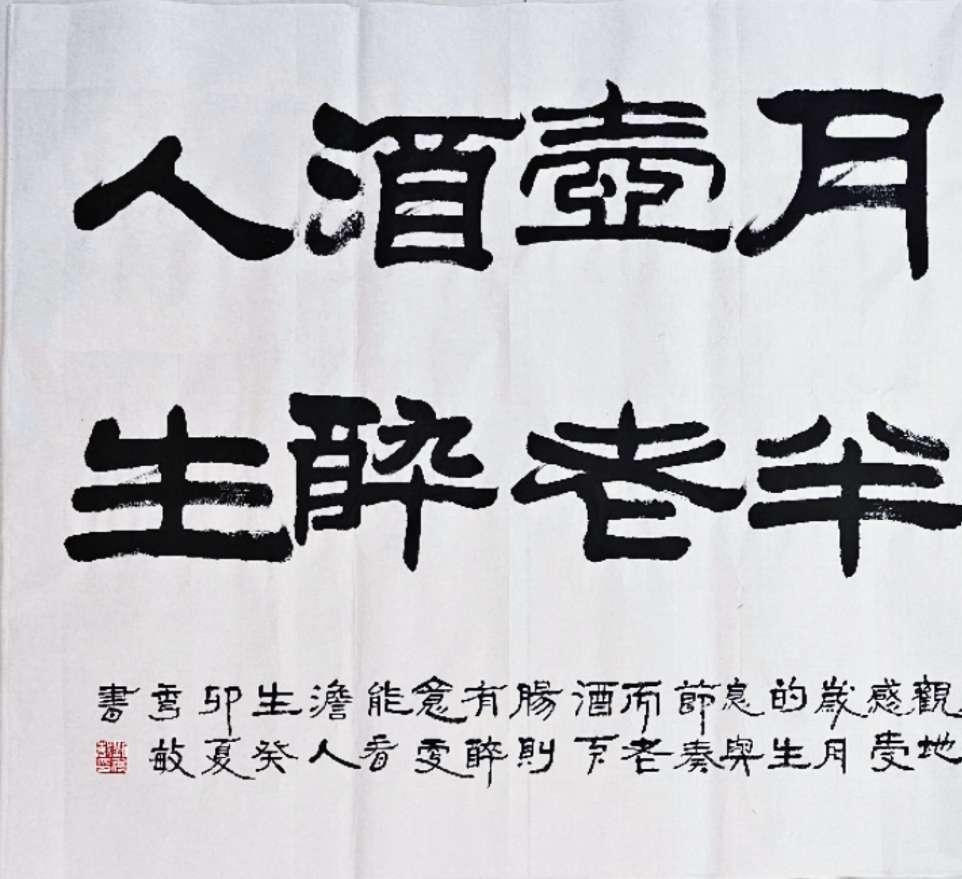 月半
壺老
酒醉
人生
觀地
感受
歲月
的生
息與
節奏
而老
酒下
腸則
有醉
意更
能看
澹人
生癸
卯夏
雪敏
書